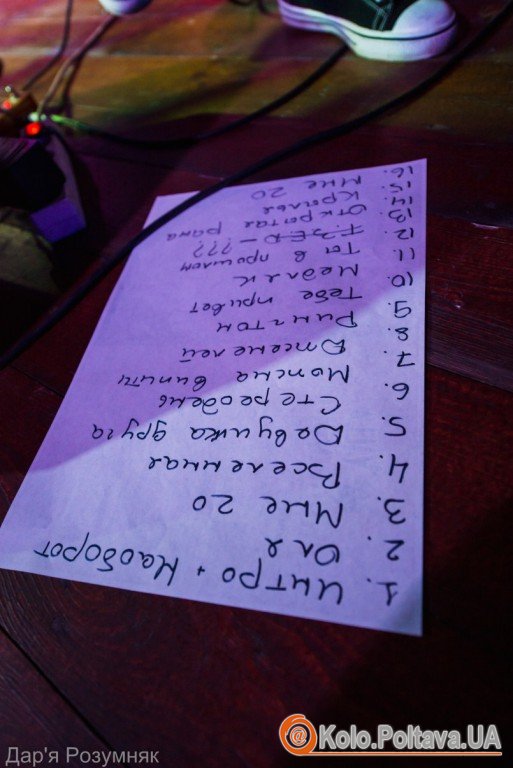 1. Интро + Наоборот
2. Оля
3. Мне 20
4. Вселенная
5. Девушка друга
6. Стереодень
7. Можна випити
8.
9. Рингтон
10. Тебе привет
11. Медляк
12. Ты в прошлом
13. - ???
14. Открытая рана
15. Крылья
16. Мне 20
Дар'я Розумняк
@Kolo.Poltava.UA